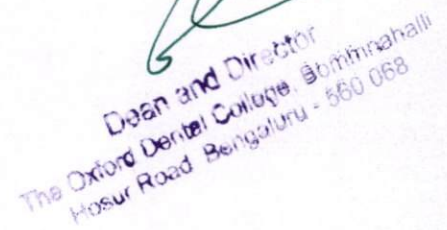 Dean and Director
The Oxford Dental College, Bommnahalli
Hosur Road Bengaluru - 560 068